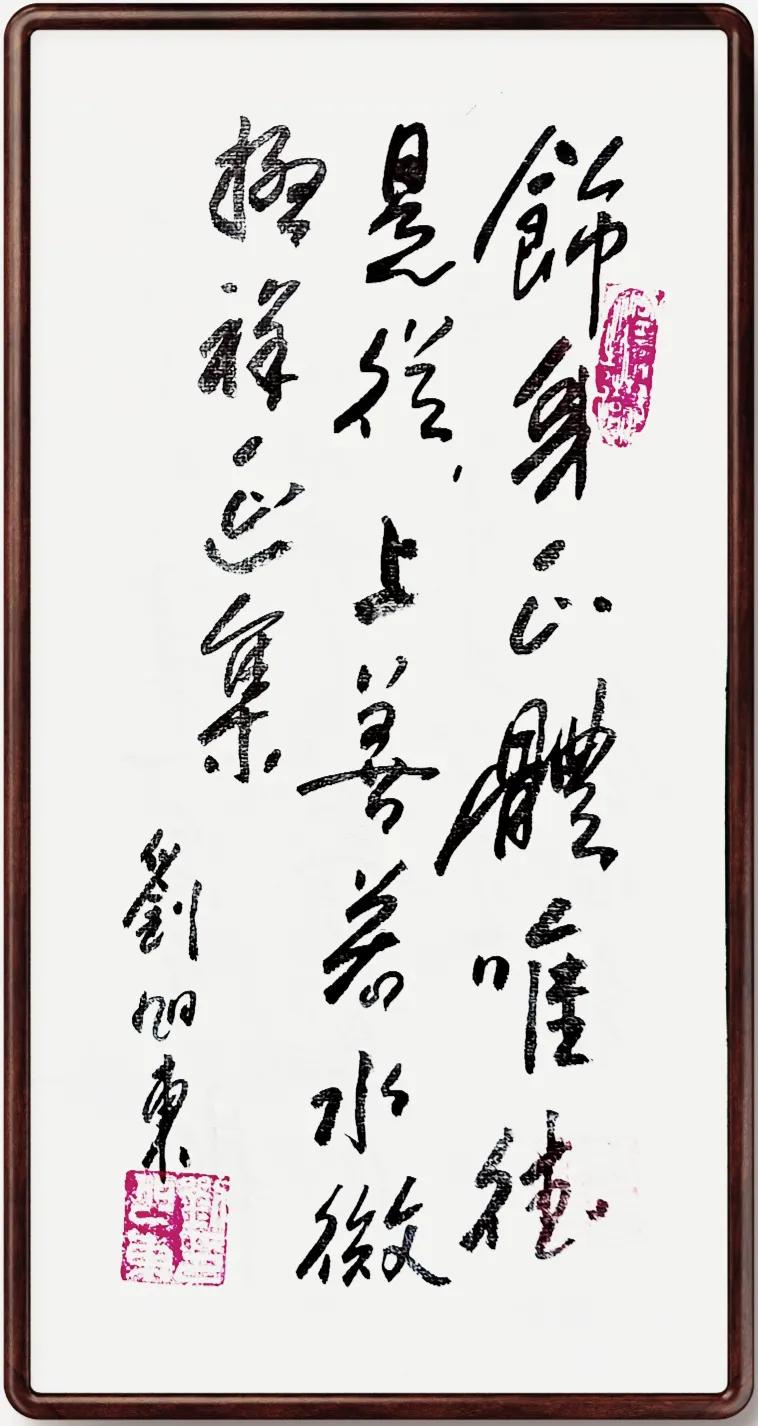 飾身正體唯德
是從，上善若水微
極祥延集
劉旭東